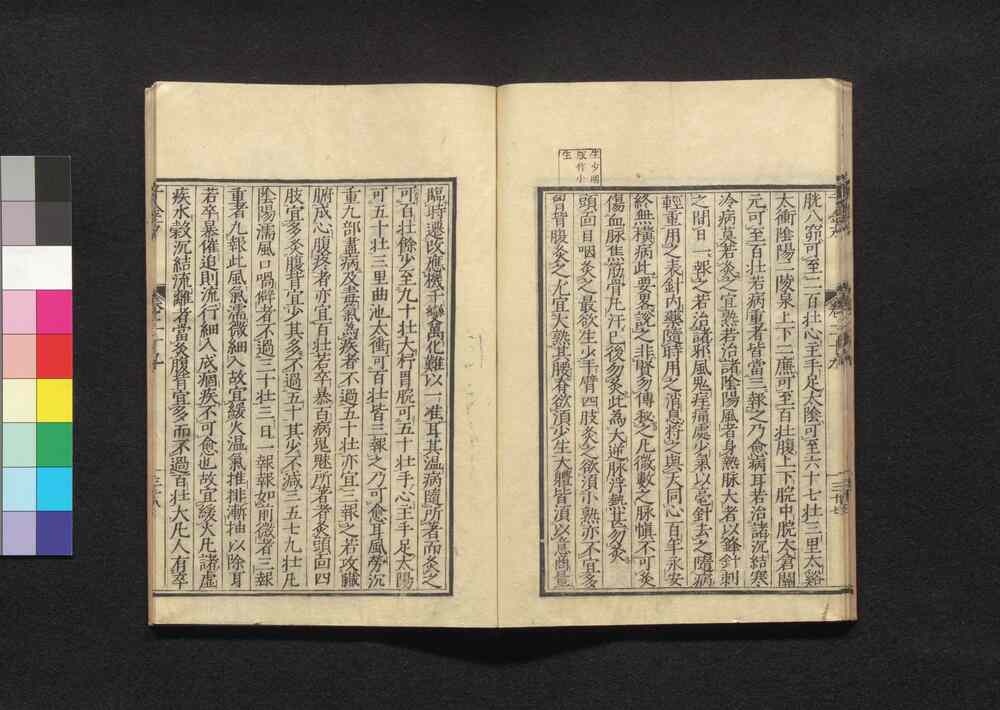 生少明
版作小
生
胱八窌可至二百壯心主手足太陰可至六十七壯三里太谿
太衝陰陽二陵泉上下二廉可至百壯腹上下脘中脘太倉關
元可至百壯若病重者皆當三報之乃愈病耳若治諸沉結寒
冷病莫若灸之宜熟若治諸陰陽風者身熱脉大者以鋒針刺
之間日一報之若治諸邪風鬼痓痛處少氣以毫針去之隨病
輕重用之表針內藥隨時用之消息將之與天同心百年永安
終無橫病此要略說之非賢勿傳秘之凡微數之脉慎不可灸
傷血脉焦筋骨凡汗已後勿灸此為大逆脉浮熱甚勿灸
頭面目咽灸之最欲生少手臂四肢灸之欲須小熟亦不宜多
胷背腹灸之尤宜大熟其腰脊欲須少生大體皆須以意商量
臨時遷改應機千變萬化難以一准耳其溫病隨所著而灸之
可百壯餘少至九十壯大杼胃脘可五十壯手心主手足太陽
可五十壯三里曲池太衝可百壯皆三報之乃可愈耳風勞沉
重九部盡病及毒氣為疾者不過五十壯亦宜三報之若攻臟
腑成心腹疼者亦宜百壯若卒暴百病鬼魅所著者灸頭面四
肢宜多灸腹背宜少其多不過五十其少不減三五七九壯凡
陰陽濡風口喎僻者不過三十壯三日一報報如前微者三報
重者九報此風氣濡微細入故宜緩火溫氣推排漸抽以除耳
若卒暴催迫則流行細入成痼疾不可愈也故宜緩火凡諸虛
疾水穀沉結流離者當灸腹背宜多而不過百壯大凡人有卒